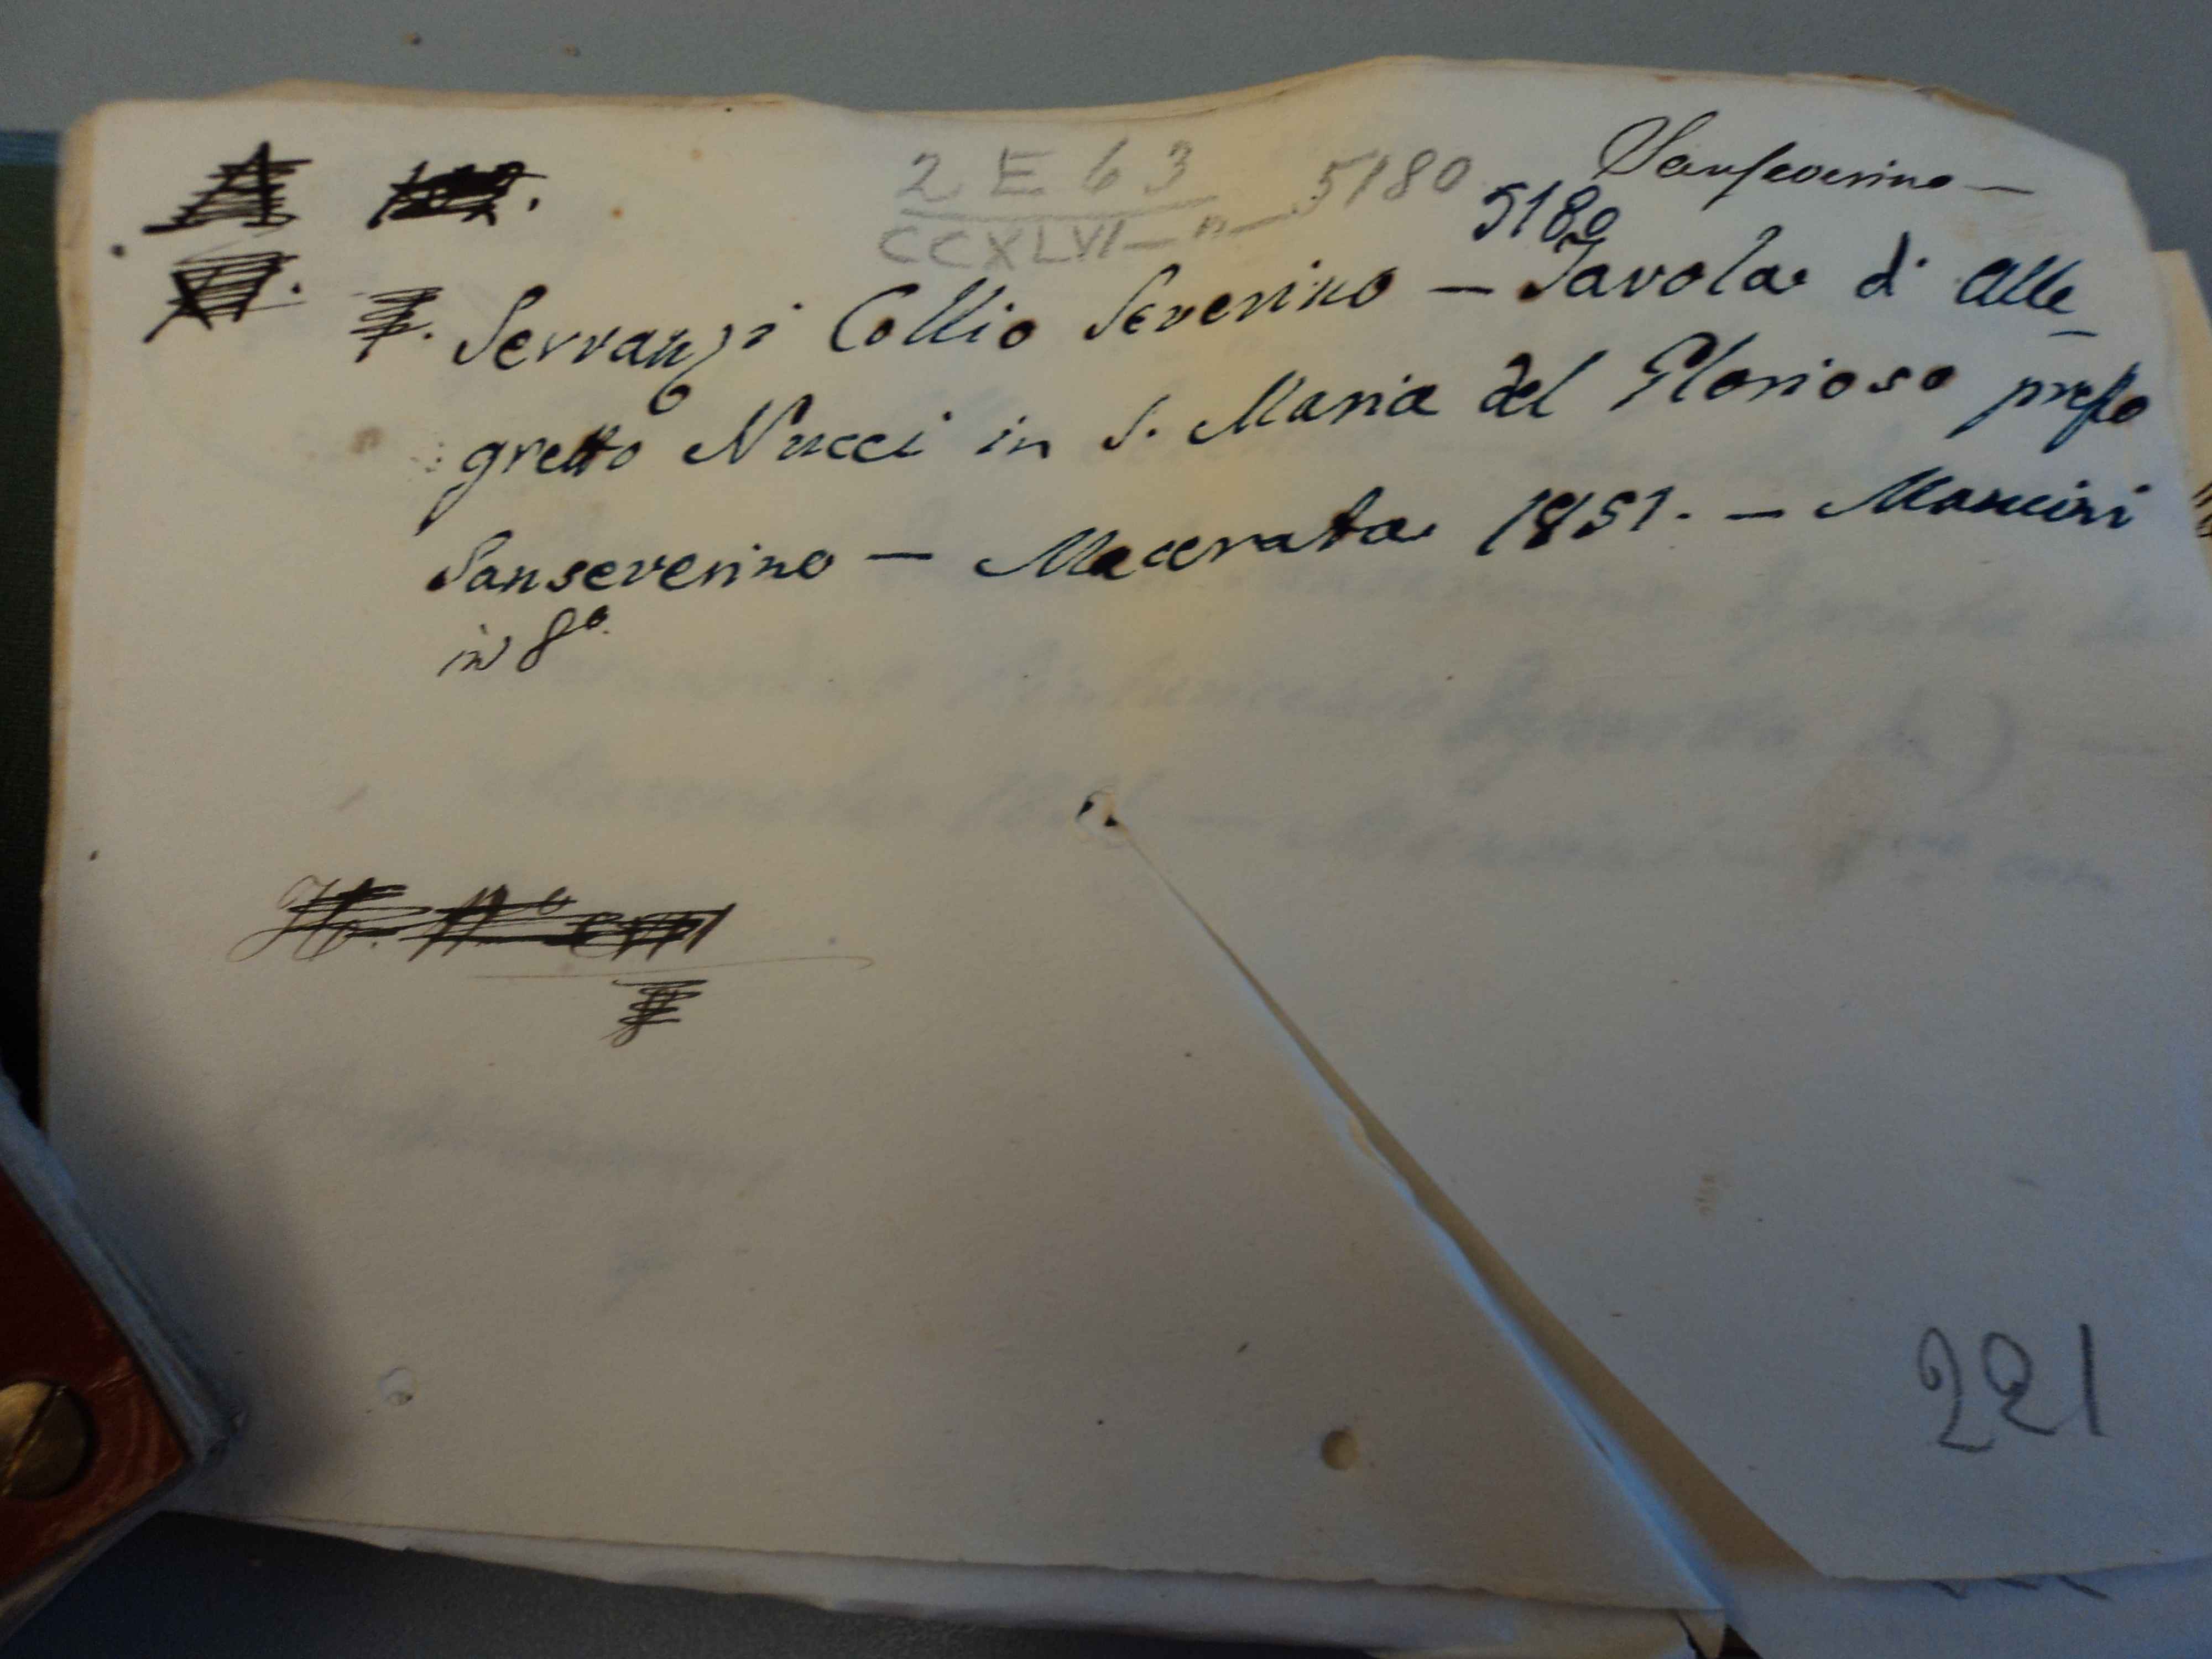 Sanseverino —
2 E 63
CCXLVI — " — 5180
5180
Servanzi Collio Severino — Tavola di Alle-
gretto Nucci in S. Maria del Glorioso presso
Sanseverino — Macerata 1851. — Mancini
in 8°.
221